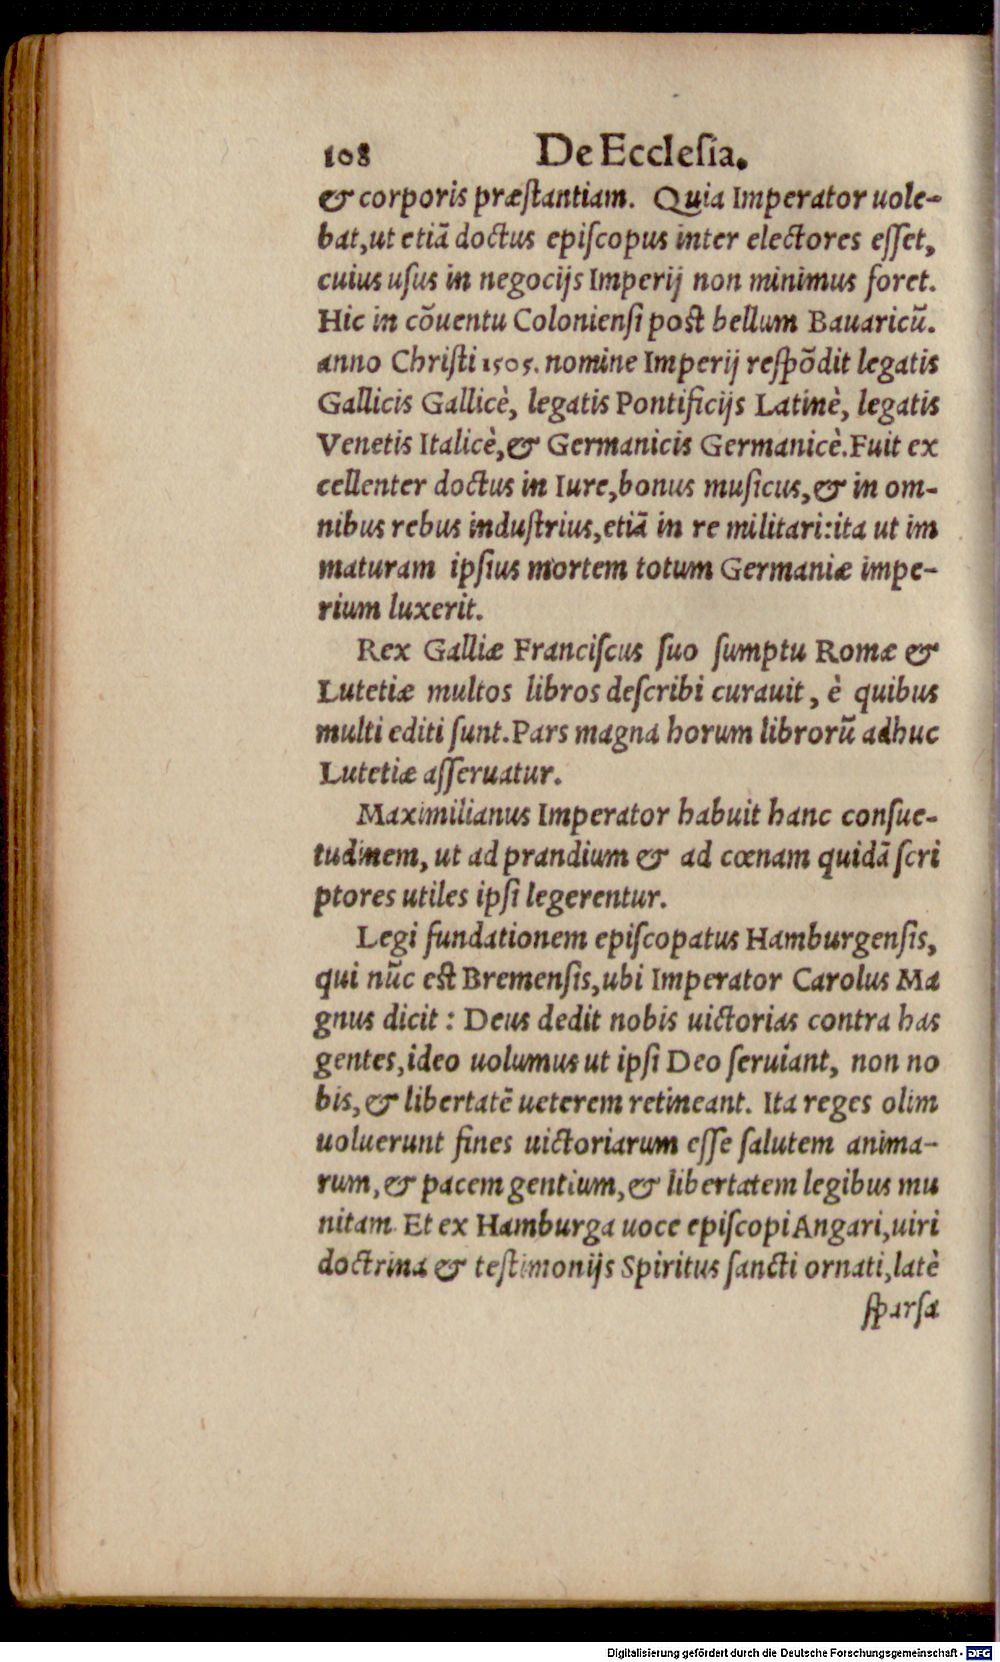 108 De Ecclesia.
& corporis præstantiam. Quia Imperator uole-
bat,ut etiã doctus episcopus inter electores esset,
cuius usus in negocijs Imperij non minimus foret.
Hic in cõuentu Coloniensi post bellum Bauaricũ.
anno Christi 1505. nomine Imperij respõdit legatis
Gallicis Gallicè, legatis Pontificijs Latinè, legatis
Venetis Italicè,& Germanicis Germanicè.Fuit ex
cellenter doctus in Iure,bonus musicus,& in om-
nibus rebus industrius,etiã in re militari:ita ut im
maturam ipsius mortem totum Germaniæ impe-
rium luxerit.
Rex Galliæ Franciscus suo sumptu Romæ &
Lutetiæ multos libros describi curauit, è quibus
multi editi sunt.Pars magna horum librorũ adhuc
Lutetiæ asseruatur.
Maximilianus Imperator habuit hanc consue-
tudinem, ut ad prandium & ad cœnam quidã scri
ptores utiles ipsi legerentur.
Legi fundationem episcopatus Hamburgensis,
qui nũc est Bremensis,ubi Imperator Carolus Ma
gnus dicit : Deus dedit nobis uictorias contra has
gentes,ideo uolumus ut ipsi Deo seruiant, non no
bis,& libertatẽ ueterem retineant. Ita reges olim
uoluerunt fines uictoriarum esse salutem anima-
rum,& pacem gentium,& libertatem legibus mu
nitam. Et ex Hamburga uoce episcopi Angari,uiri
doctrina & testimonijs Spiritus sancti ornati,latè
sparsa
Digitalisierung gefördert durch die Deutsche Forschungsgemeinschaft - DFG